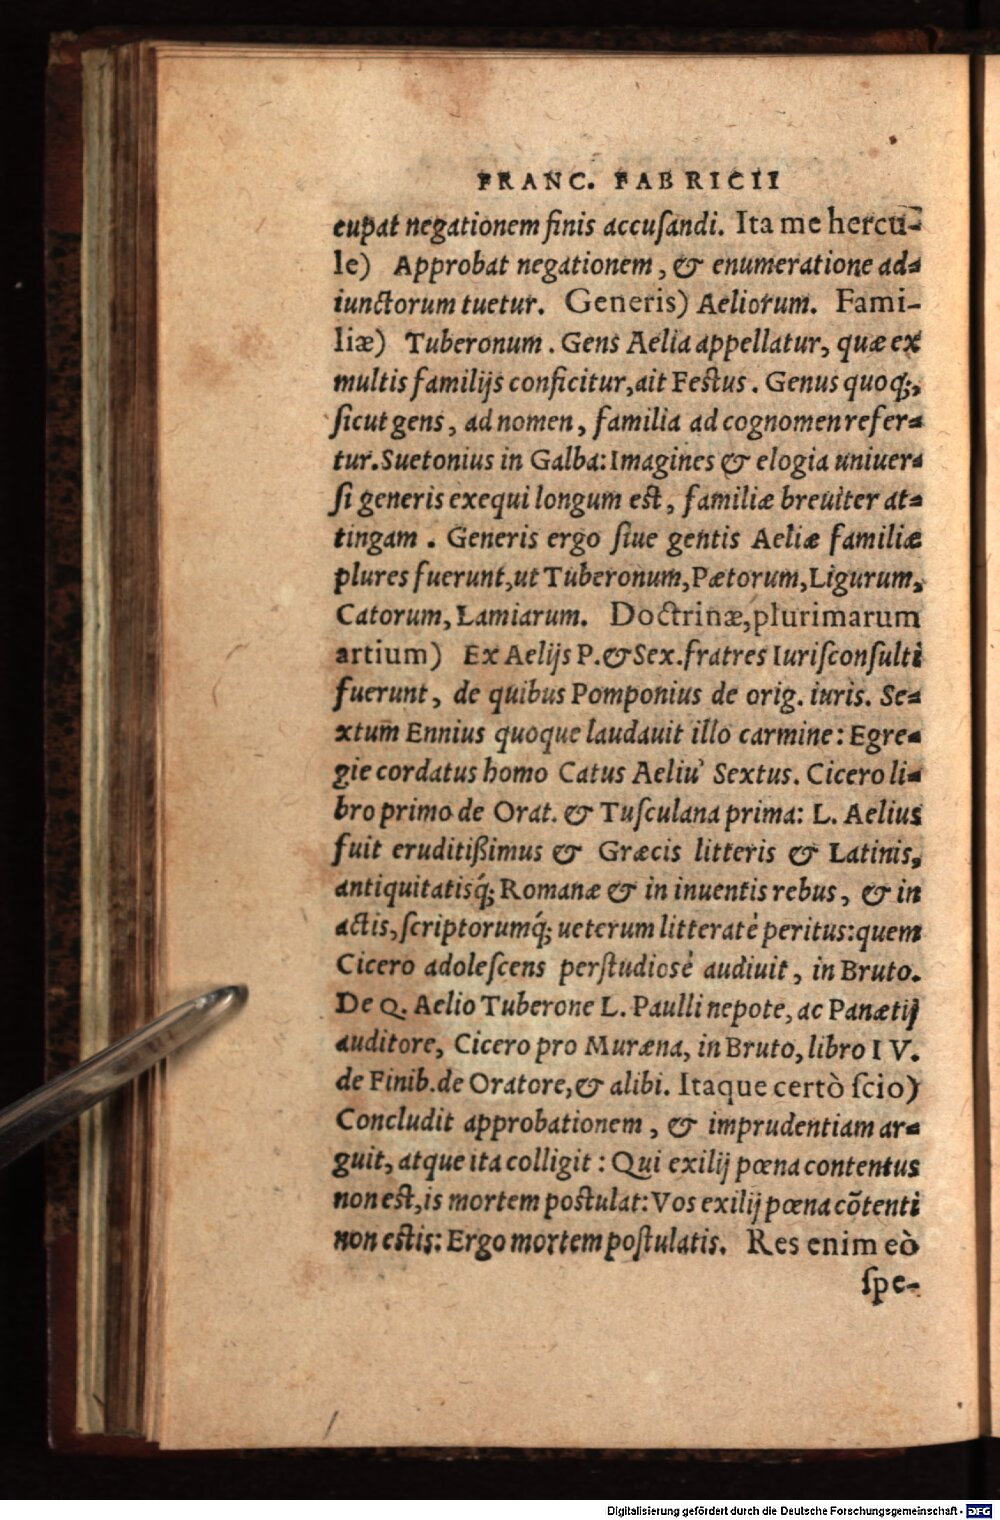 FRANC. FABRICII
cupat negationem finis accuſandi. Ita me hercu-
le) Approbat negationem, & enumeratione ad-
iunctorum tuetur. Generis) Aeliorum. Fami-
liæ) Tuberonum. Gens Aelia appellatur, quæ ex
multis familijs conficitur, ait Feſtus. Genus quoq;,
ſicut gens, ad nomen, familia ad cognomen refer-
tur. Suetonius in Galba: Imagines & elogia uniuer-
ſi generis exequi longum eſt, familiæ breuiter at-
tingam. Generis ergo ſiue gentis Aeliæ familiæ
plures fuerunt, ut Tuberonum, Pætorum, Ligurum,
Catorum, Lamiarum. Doctrinæ, plurimarum
artium) Ex Aelijs P. & Sex. fratres Iuriſconſulti
fuerunt, de quibus Pomponius de orig. iuris. Se-
xtum Ennius quoque laudauit illo carmine: Egre-
gie cordatus homo Catus Aeliu' Sextus. Cicero li-
bro primo de Orat. & Tuſculana prima: L. Aelius
fuit eruditißimus & Græcis litteris & Latinis,
antiquitatisq́; Romanæ & in inuentis rebus, & in
actis, ſcriptorumq́; ueterum litteratè peritus: quem
Cicero adoleſcens perſtudiosè audiuit, in Bruto.
De Q. Aelio Tuberone L. Paulli nepote, ac Panætij
auditore, Cicero pro Muræna, in Bruto, libro IV.
de Finib. de Oratore, & alibi. Itaque certò ſcio)
Concludit approbationem, & imprudentiam ar-
guit, atque ita colligit: Qui exilij pœna contentus
non eſt, is mortem poſtulat: Vos exilij pœna cõtenti
non eſtis: Ergo mortem poſtulatis. Res enim eò
ſpe-
Digitalisierung gefördert durch die Deutsche Forschungsgemeinschaft - DFG